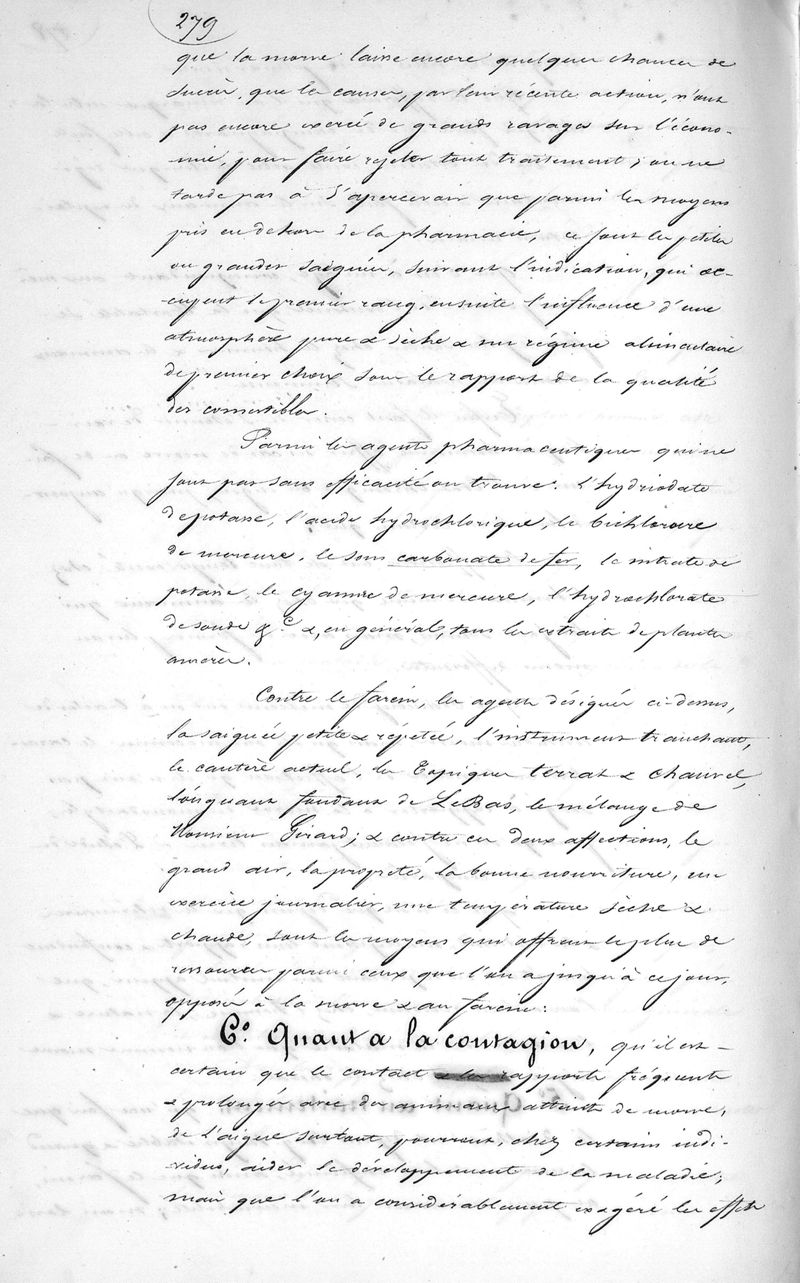 279
que la morve laisse encore quelques chances de
succès, que les causes, par leur récente action, n'ont
pas encore exercé de grands ravages sur l'écono-
mie, pour faire rejeter tout traitement; on ne
tarde pas à s'apercevoir que parmi les moyens
pris en dehors de la pharmacie, ce sont les petites
ou grandes saignées, suivant l'indication, qui oc-
cupent le premier rang, ensuite l'influence d'une
atmosphère pure & sèche & un régime alimentaire
de premier choix sous le rapport de la qualité
des comestibles.
Parmi les agents pharmaceutiques qui ne
sont pas sans efficacité on trouve. L'hydriodate
de potasse, l'acide hydrochlorique, le bichlorure
de mercure, le sous carbonate de fer, le nitrate de
potasse, le cyanure de mercure, l'hydrochlorate
de soude &c. &, en général, tous les extraits de plantes
amères.
Contre le farcin, les agents désignés ci-dessus,
la saignée petite & répétée, l'instrument tranchant,
le cautère actuel, les Topiques terrat & chauvel,
l'onguent fondant de LeBas, le mélange de
Monsieur Girard; & contre ces deux affections, le
grand air, la propreté, la bonne nourriture, un
exercice journalier, une température sèche &
chaude, sont les moyens qui offrent le plus de
ressources parmi ceux que l'on a jusqu'à ce jour,
opposé à la morve & au farcin:
6.° Quant a la contagion, qu'il est
certain que le contact & les rapports fréquents
& prolongés avec des animaux atteints de morve,
de l'aigue surtout, pourront, chez certains indi-
vidus, aider le développement de la maladie;
mais que l'on a considérablement exagéré les effets